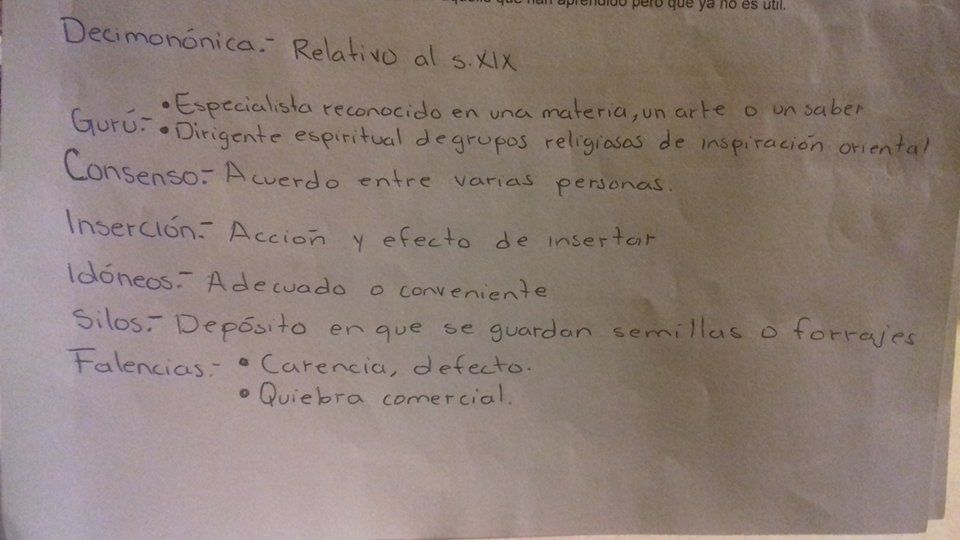 que han aprendido pero que ya no es útil.
Decimonónica.- Relativo al s.XIX
• Especialista reconocido en una materia, un arte o un saber
Gurú.- • Dirigente espiritual de grupos religiosas de inspiración oriental
Consenso.- Acuerdo entre varias personas.
Inserción.- Acción y efecto de insertar
Idóneos.- Adecuado o conveniente
Silos.- Depósito en que se guardan semillas o forrajes
Falencias.- • Carencia, defecto.
• Quiebra comercial.